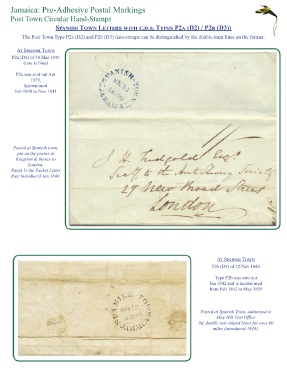 Jamaica: Pre-Adhesive Postal Markings
Post Town Circular Hand-Stamps
Spanish Town Letters with c.d.s. Types P2a (D2) / P2b (D3))
The Post Town Type P2a (D2) and P2b (D3) date-stamps can be distinguished by the double tram lines on the former.
At Spanish Town
P2a (D2) of 30 Mar 1840
(rare in blue)
P2a was sent out Apr
1839,
known used
Feb 1840 to Nov 1841
Posted at Spanish town,
put on the packet at
Kingston & thence to
London.
Rated 1s the Packet Letter
Rate introduced Jan 1840
SPANISH-TOWN
JAMAICA
11
J H Tredgold Esqr
Secy to the Anti Slavery Society
27 New Broad Street
London
At Spanish Town
P2b (D3) of 12 Nov 1846
Type P2b was sent out
Jan 1842 and is known used
from Feb 1842 to May 1859
Posted at Spanish Town, addressed to
May Hill Post Office
8d. double rate inland letter for over 60
miles (introduced 1843).
SPANISH-TOWN
JAMAICA